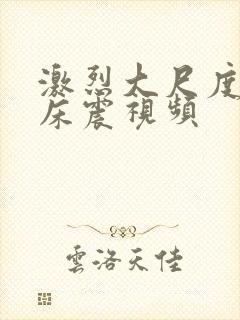 激烈大尺度
床震視頻
雲洛天佳